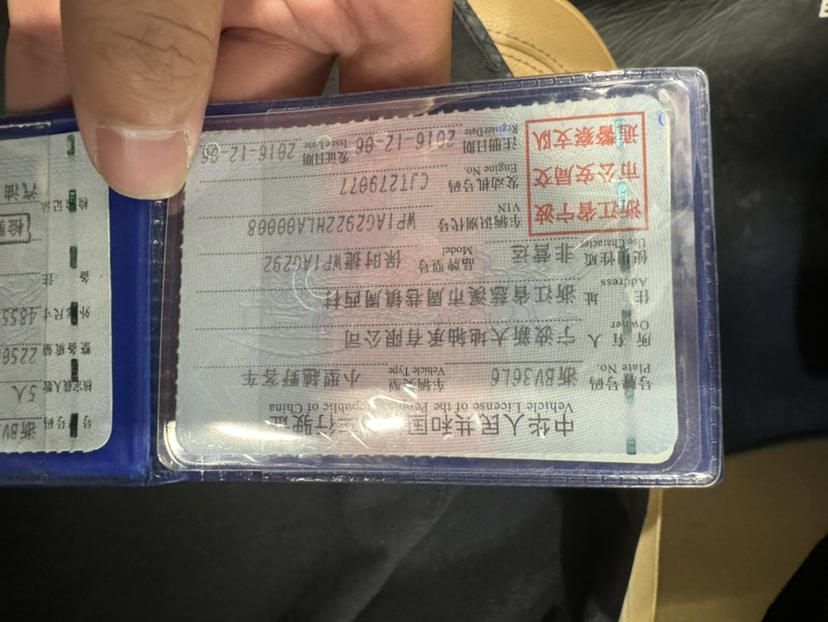 中华人民共和国 行驶证
Vehicle License of the People's Republic of China
号牌号码 浙BV36L6 车辆类型 小型越野客车
Plate No. Vehicle Type
所有人 宁波新大地轴承有限公司
Owner
住址 浙江省慈溪市周巷镇周西村
Address
使用性质 非营运 品牌型号 保时捷WP1AG292
Use Character Model
浙江省宁波
市公安局交
通警察支队
车辆识别代号 WP1AG2922HLA00008
VIN
发动机号码 CJT279077
Engine No.
注册日期 2016-12-06 发证日期 2016-12-06
Register Date Issue Date
号 浙BV
核定载人数 5人
整备质量 2250
外廓尺寸 4855
备
检验记录
汽油